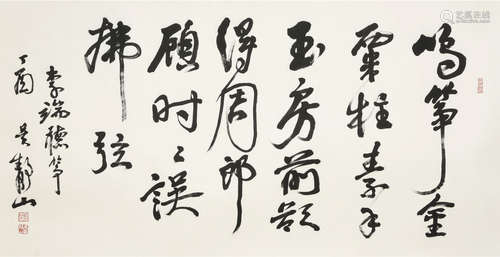 鸣筝金
粟柱素手
玉房前欲
得周郎
顾时〻误
拂弦
李端听筝
丁酉 吴静山